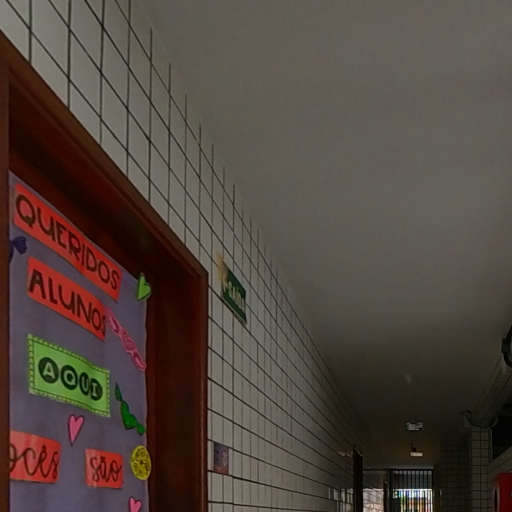 QUERIDOS
ALUNOS
AQUI
vocês são
SAÍDA